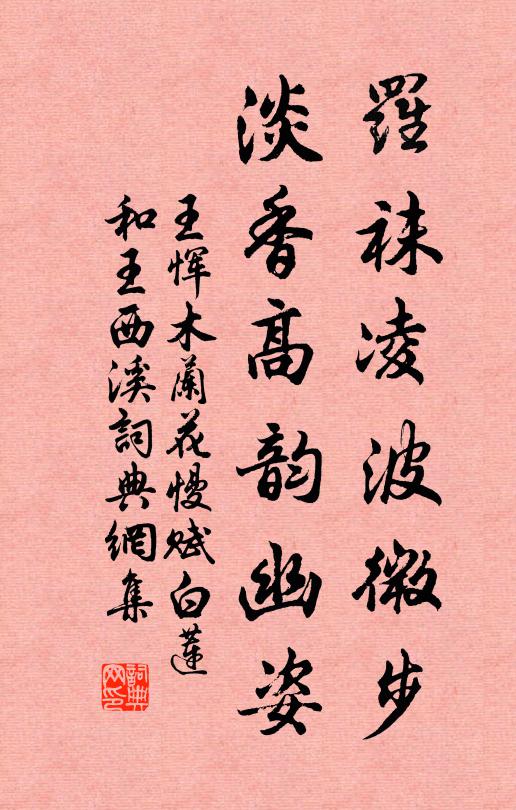 羅袜凌波微步
淡香高韵幽姿
王恽木蘭花慢赋白蓮
和王西溪詞典網集
詞典網印